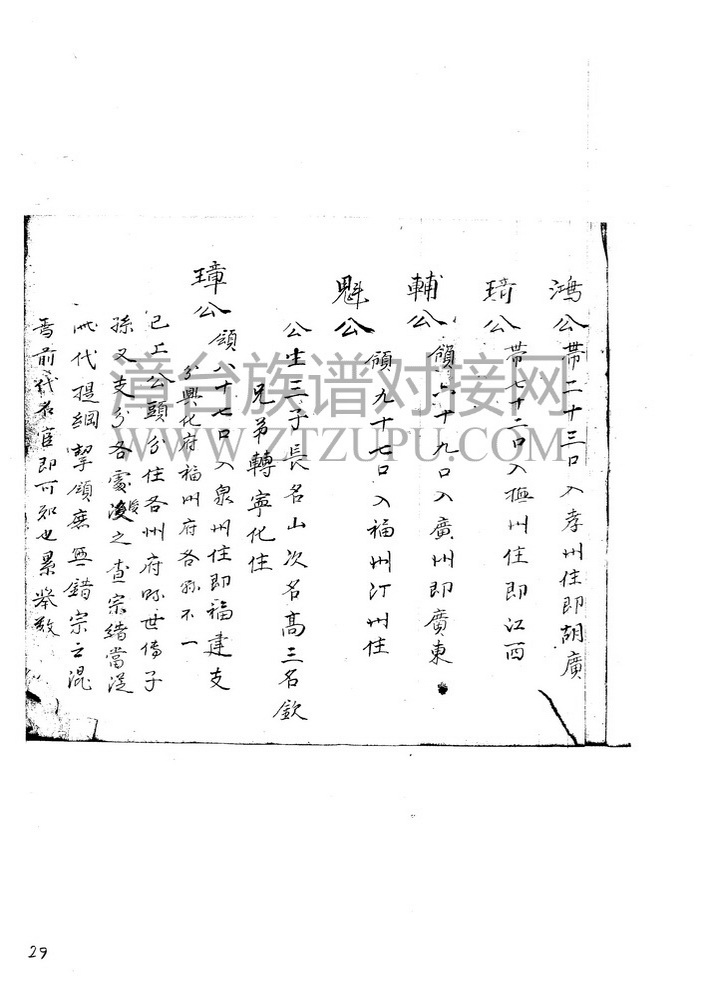 鴻公帶二十三口入孝州住即胡廣
琦公帶七十二口入撫州住即江西
輔公領六十九口入廣州即廣東
魁公領九十七口入福州汀州住
公生三子長名山次名高三名欽
兄弟轉寧化住
璋公領八十七口入泉州住即福建支
分興化府福州府各縣不一
已上公頭分住各州府縣世傳子
孫又支分各處後之查宗緒當從
此代提綱挈領庶無錯宗之混
焉前代名宦即可知也累舉數
漳台族谱对接网
WWW.ZTZUPU.COM
29